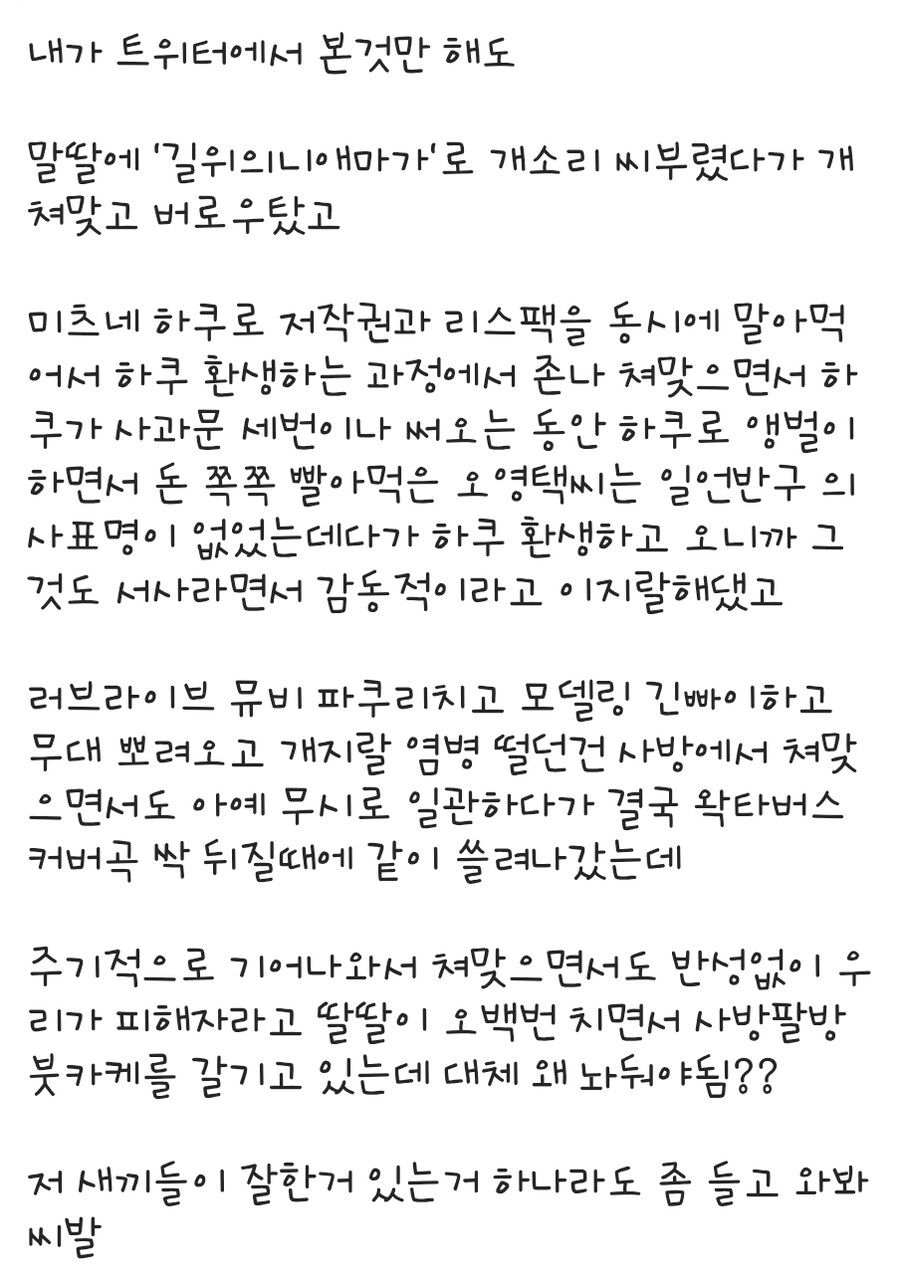 내가 트위터에서 본것만 해도
말딸에 '길위의니애마가'로 개소리 씨부렸다가 개
쳐맞고 버로우탔고
미츠네 하쿠로 저작권과 리스팩을 동시에 말아먹
어서 하쿠 환생하는 과정에서 존나 쳐맞으면서 하
쿠가 사과문 세번이나 써오는 동안 하쿠로 앵벌이
하면서 돈 쪽쪽 빨아먹은 오영택씨는 일언반구 의
사표명이 없었는데다가 하쿠 환생하고 오니까 그
것도 서사라면서 감동적이라고 이지랄해댔고
러브라이브 뮤비 파쿠리치고 모델링 긴빠이하고
무대 뽀려오고 개지랄 염병 떨던건 사방에서 쳐맞
으면서도 아예 무시로 일관하다가 결국 왁타버스
커버곡 싹 뒤질때에 같이 쓸려나갔는데
주기적으로 기어나와서 쳐맞으면서도 반성없이 우
리가 피해자라고 딸딸이 오백번 치면서 사방팔방
붓카케를 갈기고 있는데 대체 왜 놔둬야됨??
저 새끼들이 잘한거 있는거 하나라도 좀 들고 와봐
씨발